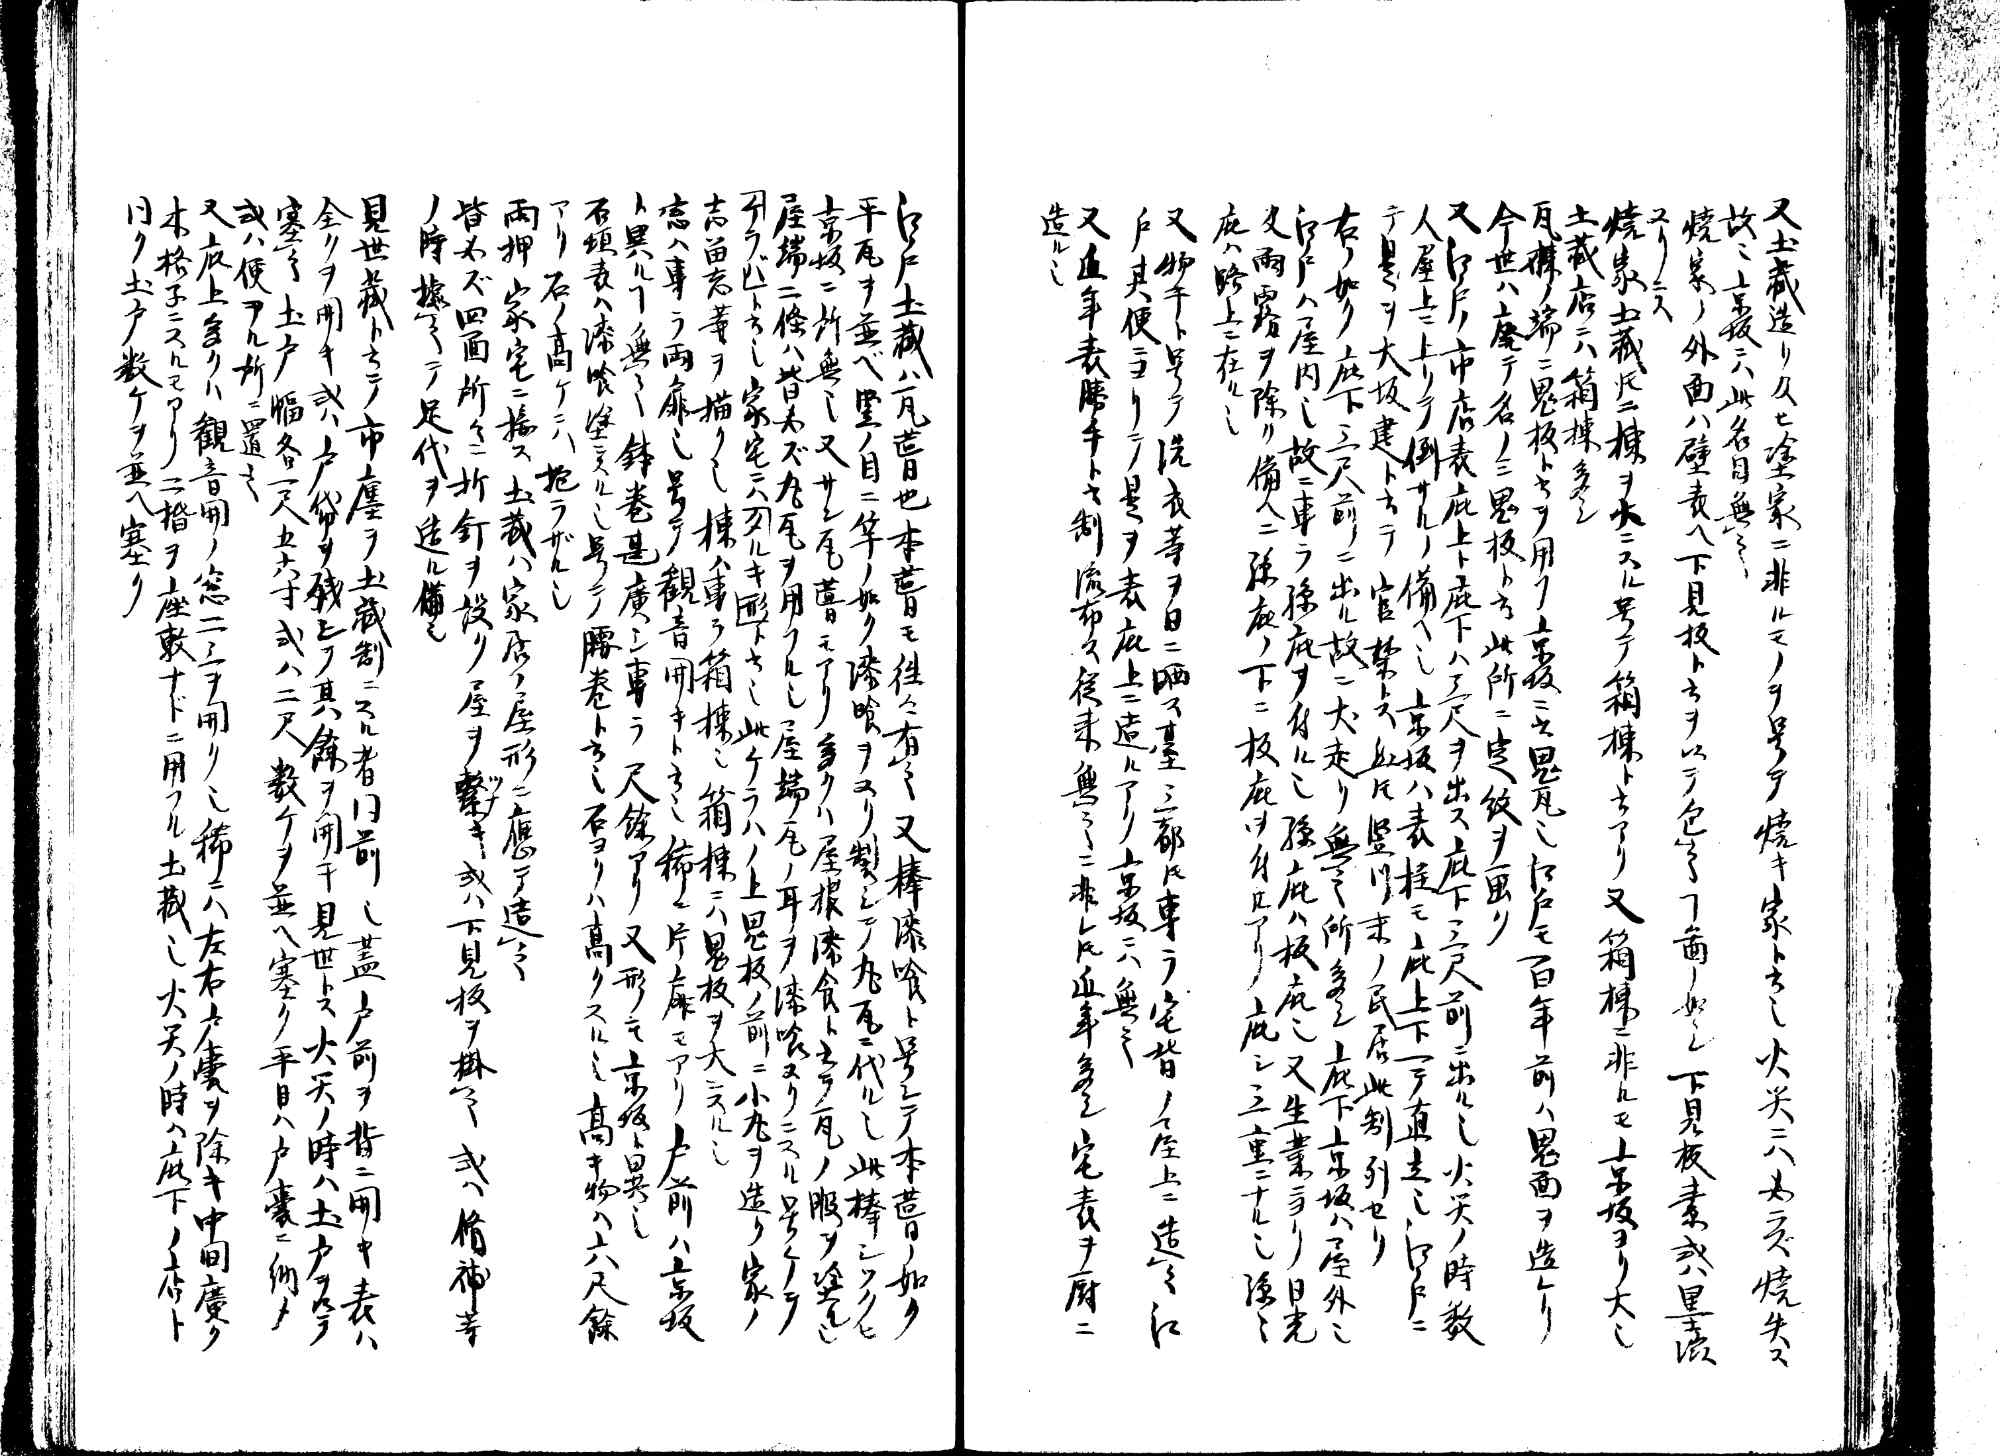 又土蔵造リ及ヒ塗家ニ非ルモノヲ号テ焼キ家ト云也火災ニハ必ズ焼失ス
故ニ京坂ニハ此名目無之
焼家ノ外面ハ壁表ヘ下見板ト云ヲ以テ包之コト図ノ如シ下見板素或ハ黒渋
ヌリニス
焼家土蔵トモニ棟ヲ大ニスル号テ箱棟ト云アリ又箱棟ニ非ルモ京坂ヨリ大也
土蔵店ニハ箱棟多シ
瓦棟ノ端ニ鬼板ト云ヲ用フ京坂ニ云鬼瓦也江戸モ百年前ハ鬼面ヲ造レリ
今世ハ廃テ名ノミ鬼板ト云此所ニ定紋ヲ画リ
又江戸ノ市店表庇上ト庇下ハ三尺ヲ出ス庇下ハ三尺前ニ出ル也火災ノ時数
人屋上ニ上リテ倒サルノ備ヘ也京坂ハ表柱モ庇上下一テ直立也江戸ニ
テ是ヲ大坂建ト云テ官禁トス然トモ竪川末ノ民居此制列セリ
右ノ如ク庇下三尺前ニ出ル故ニ犬走リ無之所多シ庇下京坂ハ屋外也
江戸ハ屋内也故ニ専ラ孫庇ヲ付ル也孫庇ハ板庇也又生業ニヨリ日光
又雨露ヲ除リ備ヘニ孫庇ノ下ニ板庇ヲ付ルアリ庇シ三重ニナル也孫
庇ハ路上ニ在ル也
又物干ト号テ洗衣等ヲ日ニ晒ス台三都トモ専ラ宅背ノ屋上ニ造之江
戸其便ニヨリテ是ヲ表庇上ニ造ルアリ京坂ニハ無之
又近年表勝手ト云制流布ス従来無之ニ非レトモ近年多シ宅表ヲ厨ニ
造ル也
江戸土蔵ハ瓦葺也本葺モ往々有之又棒漆喰ト号シテ本葺ノ如ク
平瓦ヲ並ベ竪ノ目ニ竿ノ如ク漆喰ヲヌリ製シテ丸瓦ニ代ル也此棒シックヒ
京坂ニ所無也又サン瓦葺モアリ多クハ屋根漆食ト云テ瓦ノ服ヲ塗也
屋端二條ハ皆必ズ丸瓦ヲ用フル也屋端瓦ノ耳ヲ漆喰ヌリニスル号ケテ
ケラバト云也家宅ニハ刀ルキ形ト云也此ケラハノ上鬼板ノ前ニ小丸ヲ造リ家ノ
志苗志等ヲ描ク也棟ハ専ラ箱棟也箱棟ニハ鬼板ヲ大ニスル也
窓ハ専ラ両扉也号テ観音開キト云也稀ニ片扉モアリ戸前ハ京坂
ト異ルコト無之鉢巻甚広シ専ラ尺余アリ又形モ京坂ト異也
石垣表ハ漆喰塗ニスル也号テ腰巻ト云也石ヨリハ高クスル也高キ物ハ六尺余
アリ石ノ高ケニハ抱ラザル也
両押家宅ニ接ス土蔵ハ家居ノ屋形ニ応テ造之
皆必ズ四面所々ニ折釘ヲ設ク屋ヲ繋キ或ハ下見板ヲ掛之或ハ脩補等
ツナ
ノ時據之テ足代ヲ造ル備也
見世蔵ト云テ市廛ヲ土蔵制ニスル者戸前也蓋戸前ヲ背ニ開キ表ハ
全クヲ開キ或ハ戸袋ヲ残シテ其余ヲ開キ見世トス火災ノ時ハ土戸ヲ以テ
塞之土戸幅各一尺五六寸或ハ二尺数ケヲ並ヘ塞ク平日ハ戸嚢ニ納メ
或ハ便ヲル所ニ置之
又庇上多クハ観音開ノ窓二三ヲ開ク也稀ニハ左右戸嚢ヲ除キ中間広ク
木格子ニスルモアリ二階ヲ座敷ナドニ用フル土蔵也火災ノ時ハ庇下ノ店ト
同ク土戸数ケヲ並ヘ塞ク